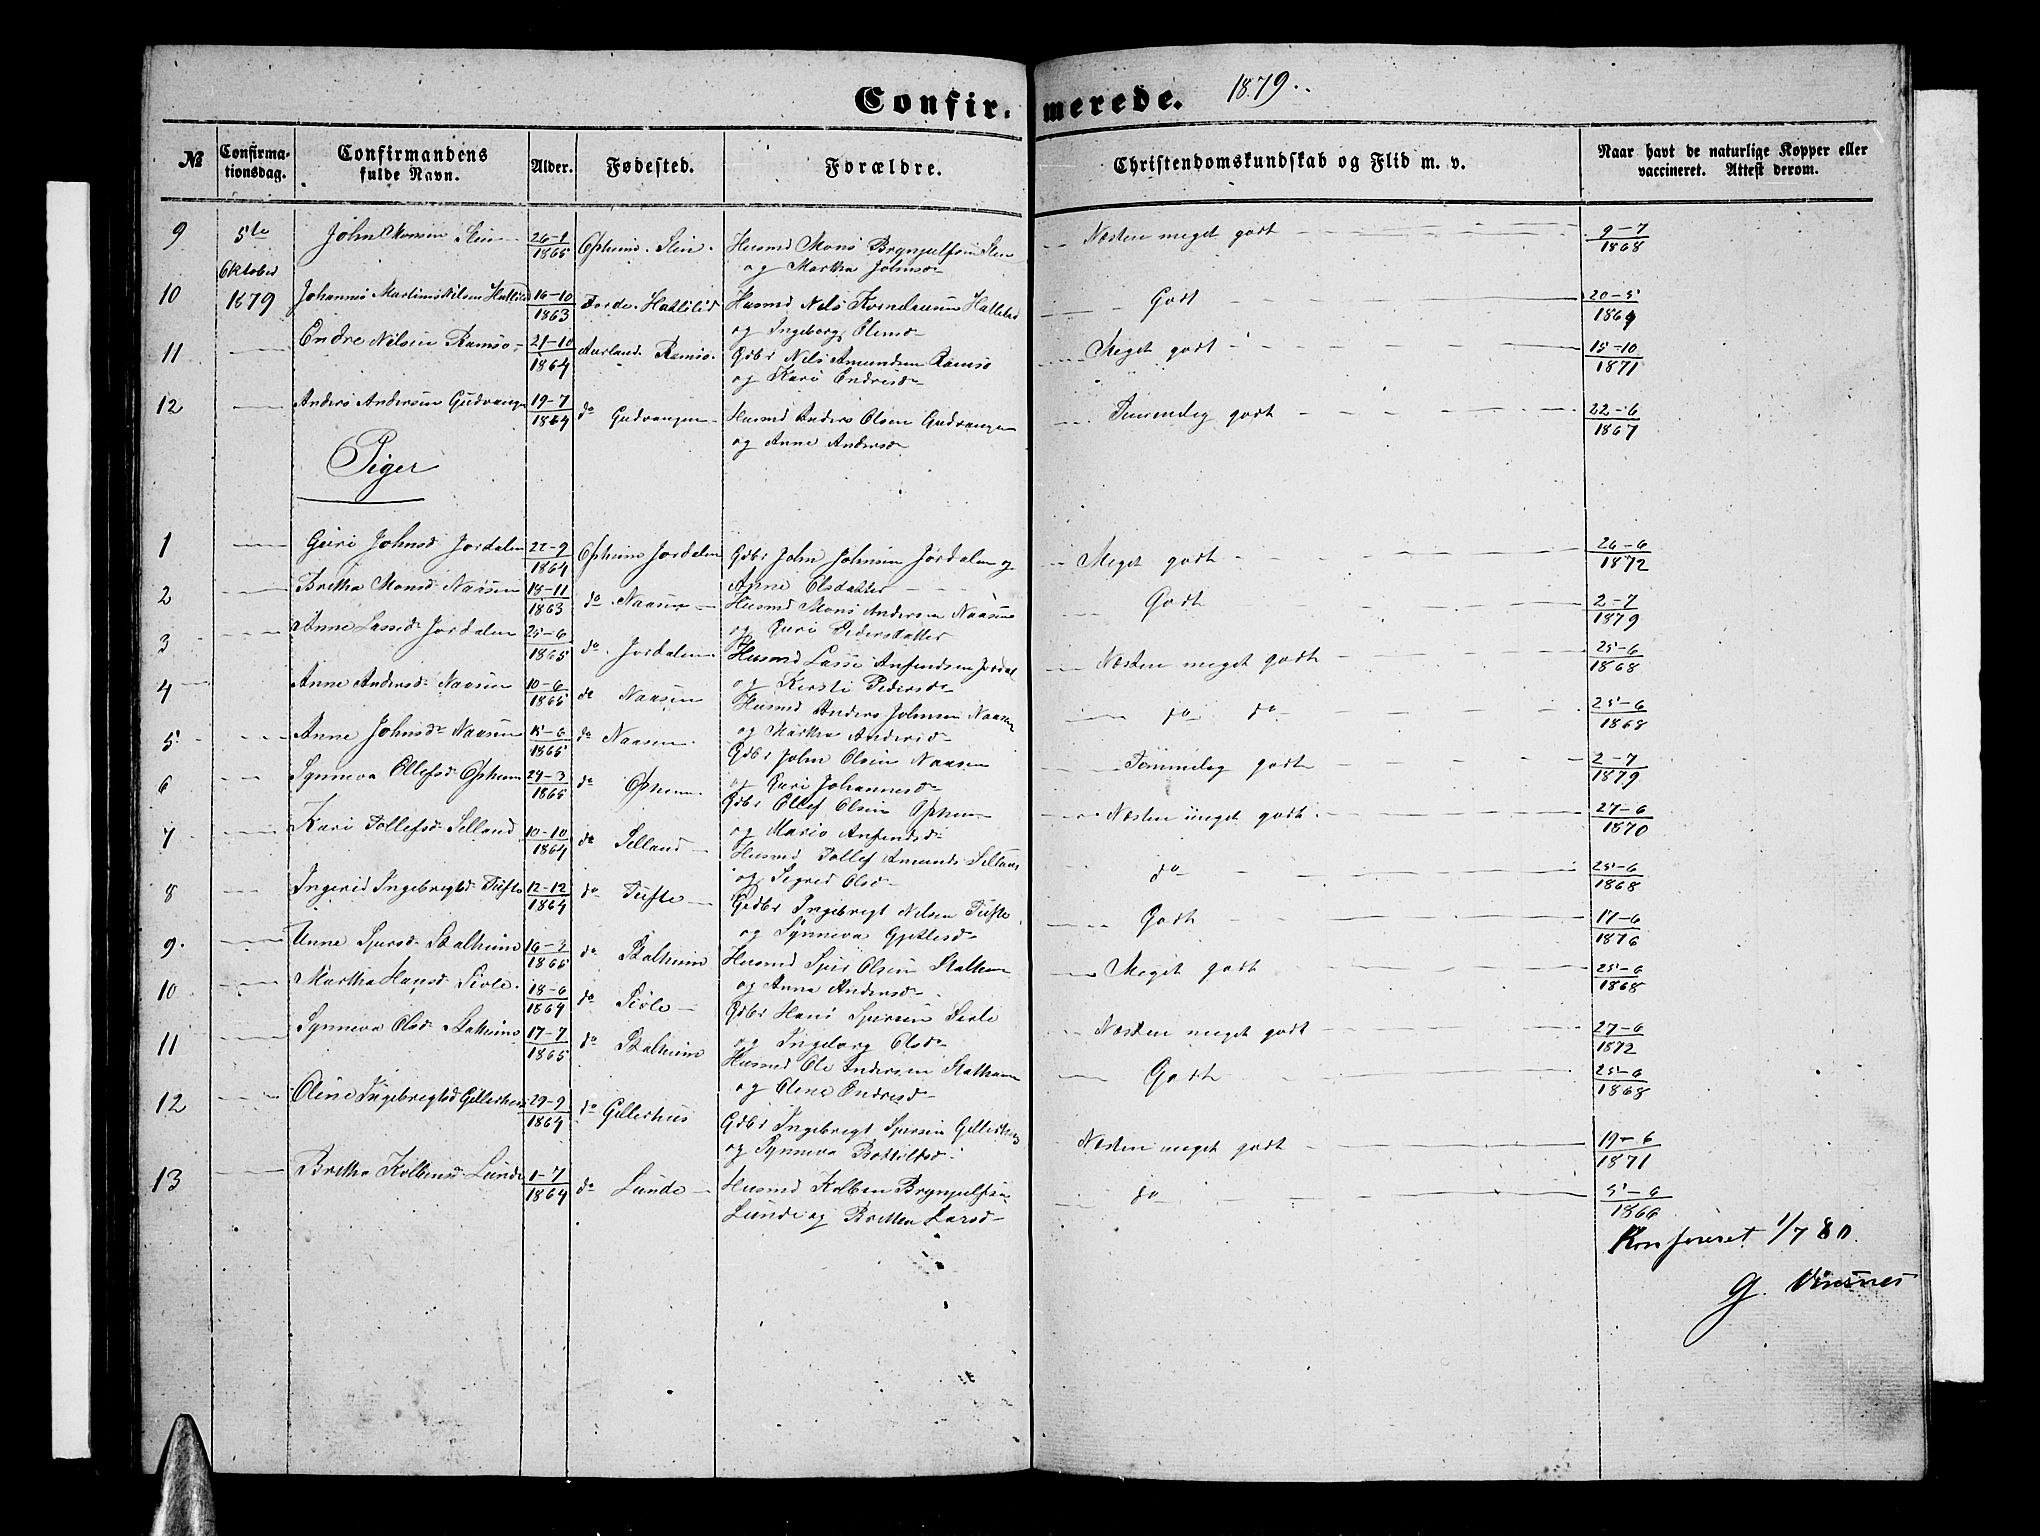 Confirmerede. 1879.
№ Confirmationsdag. Confirmandens fulde Navn. Alder. Fødested. Forældre. Christendomskundskab og Flid m. v. Naar havt de naturlige Kopper eller vaccineret. Attest derom.
9 5te John Monsen Sten 26-1 1865 Opheims Sten. Husmd Mons Brynjulfsen Sten Næsten meget godt 9-7 1868
Oktober og Martha Johnsd
10 1879 Johannes Martinus Nilsen Hattelid 16-10 1863 Hattelid Husmd Nils Hattelid Godt 20-5 1864
og Ingeborg Olensd
11 Endre Nilsen Ramsø 21-10 1864 Aurland Ramsø Gdbr Nils Amundsen Ramsø Meget godt 15-10 1871
og Kari Endresd
12 Anders Andersen Gudvangen 19-7 1864 do Gudvangen Husmd Anders Olsen Gudvangen Temmelig godt 22-6 1867
og Anne Andersd
Piger
1 Guri Johnsd Jordalen 22-9 1864 Opheims Jordalen Gdbr John Johnsen Jordalen og Meget godt 26-6 1872
Anne Olsdatter
2 Bretha Monsd Naasen 18-11 1863 do Naasen Husmd Mons Andersen Naasen Godt 2-7 1879
og Guri Pedersdatter
3 Anne Lassesd Jordalen 25-6 1865 do Jordalen Husmd Lasse Anfendsen Jordal Næsten meget godt 25-6 1868
og Kersti Pedersd
4 Anne Andersd Naasen 10-6 1865 do Naasen Husmd Anders Johnsen Naasen do do 25-6 1868
og Martha Andersd
5 Anne Johnsd Naasen 15-6 1865 do Naasen Gdbr John Olsen Naasen Temmelig godt 2-7 1879
og Guri Johannesd
6 Synneva Ollefsd Opheim 29-3 1865 do Opheim Gdbr Ollef Olsen Opheim Næsten meget godt 27-6 1870
og Maria Anfindsd
7 Kari Tollefsd Selland 10-10 1864 do Selland Husmd Tollef Amunds Selland do 25-6 1868
og Sigrid Olsd
8 Ingerid Ingebrigtsd Tufte 12-12 1864 do Tufte Gdbr Ingebrigt Nilsen Tufte Godt 17-6 1876
og Synneva Gjetlesd
9 Anne Spersd Stalheim 16-3 1865 do Stalheim Husmd Sper Olsen Stalheim Meget godt 25-6 1868
og Anna Andersd
10 Martha Hansd Sivle 18-6 1864 do Sivle Gdbr Hans Spersen Sivle Næsten meget godt 27-6 1872
og Ingeborg Olsd
11 Synneva Olsd Stalheim 17-7 1865 do Stalheim Husmd Ole Andersen Stalheim Godt 25-6 1868
og Olena Endresd
12 Oline Ingebrigtsd Gillerhus 29-9 1864 do Gillerhus Gdbr Ingebrigt Spersen Gillerhus Næsten meget godt 19-6 1871
og Synneva Bottilfsd
13 Bretha Kolbensd Lunde 1-7 1864 do Lunde Husmd Kolben Brynjulfsen do 5-6 1866
Lunde og Bretha Larsd
Konfereret 1/7 80.
G.